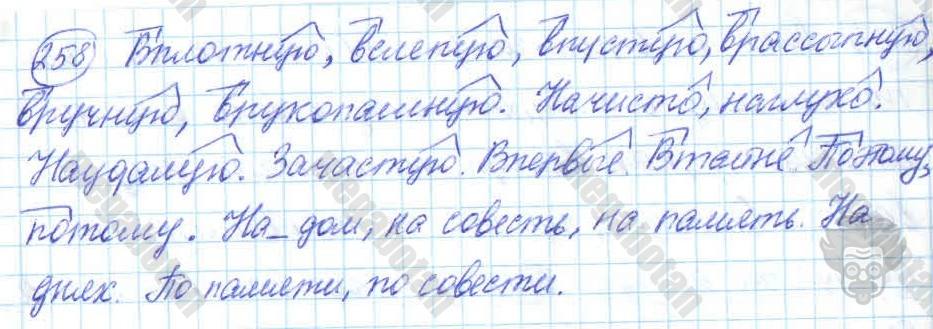 258 Вплотную, вслепую, впустую, врассыпную,
вручную, врукопашную. Начисто, наглухо.
Наудалую. Зачастую. Впервые. Втайне. Поэтому,
потому. На_дом, на совесть, на память. На
днях. По памяти, по совести.